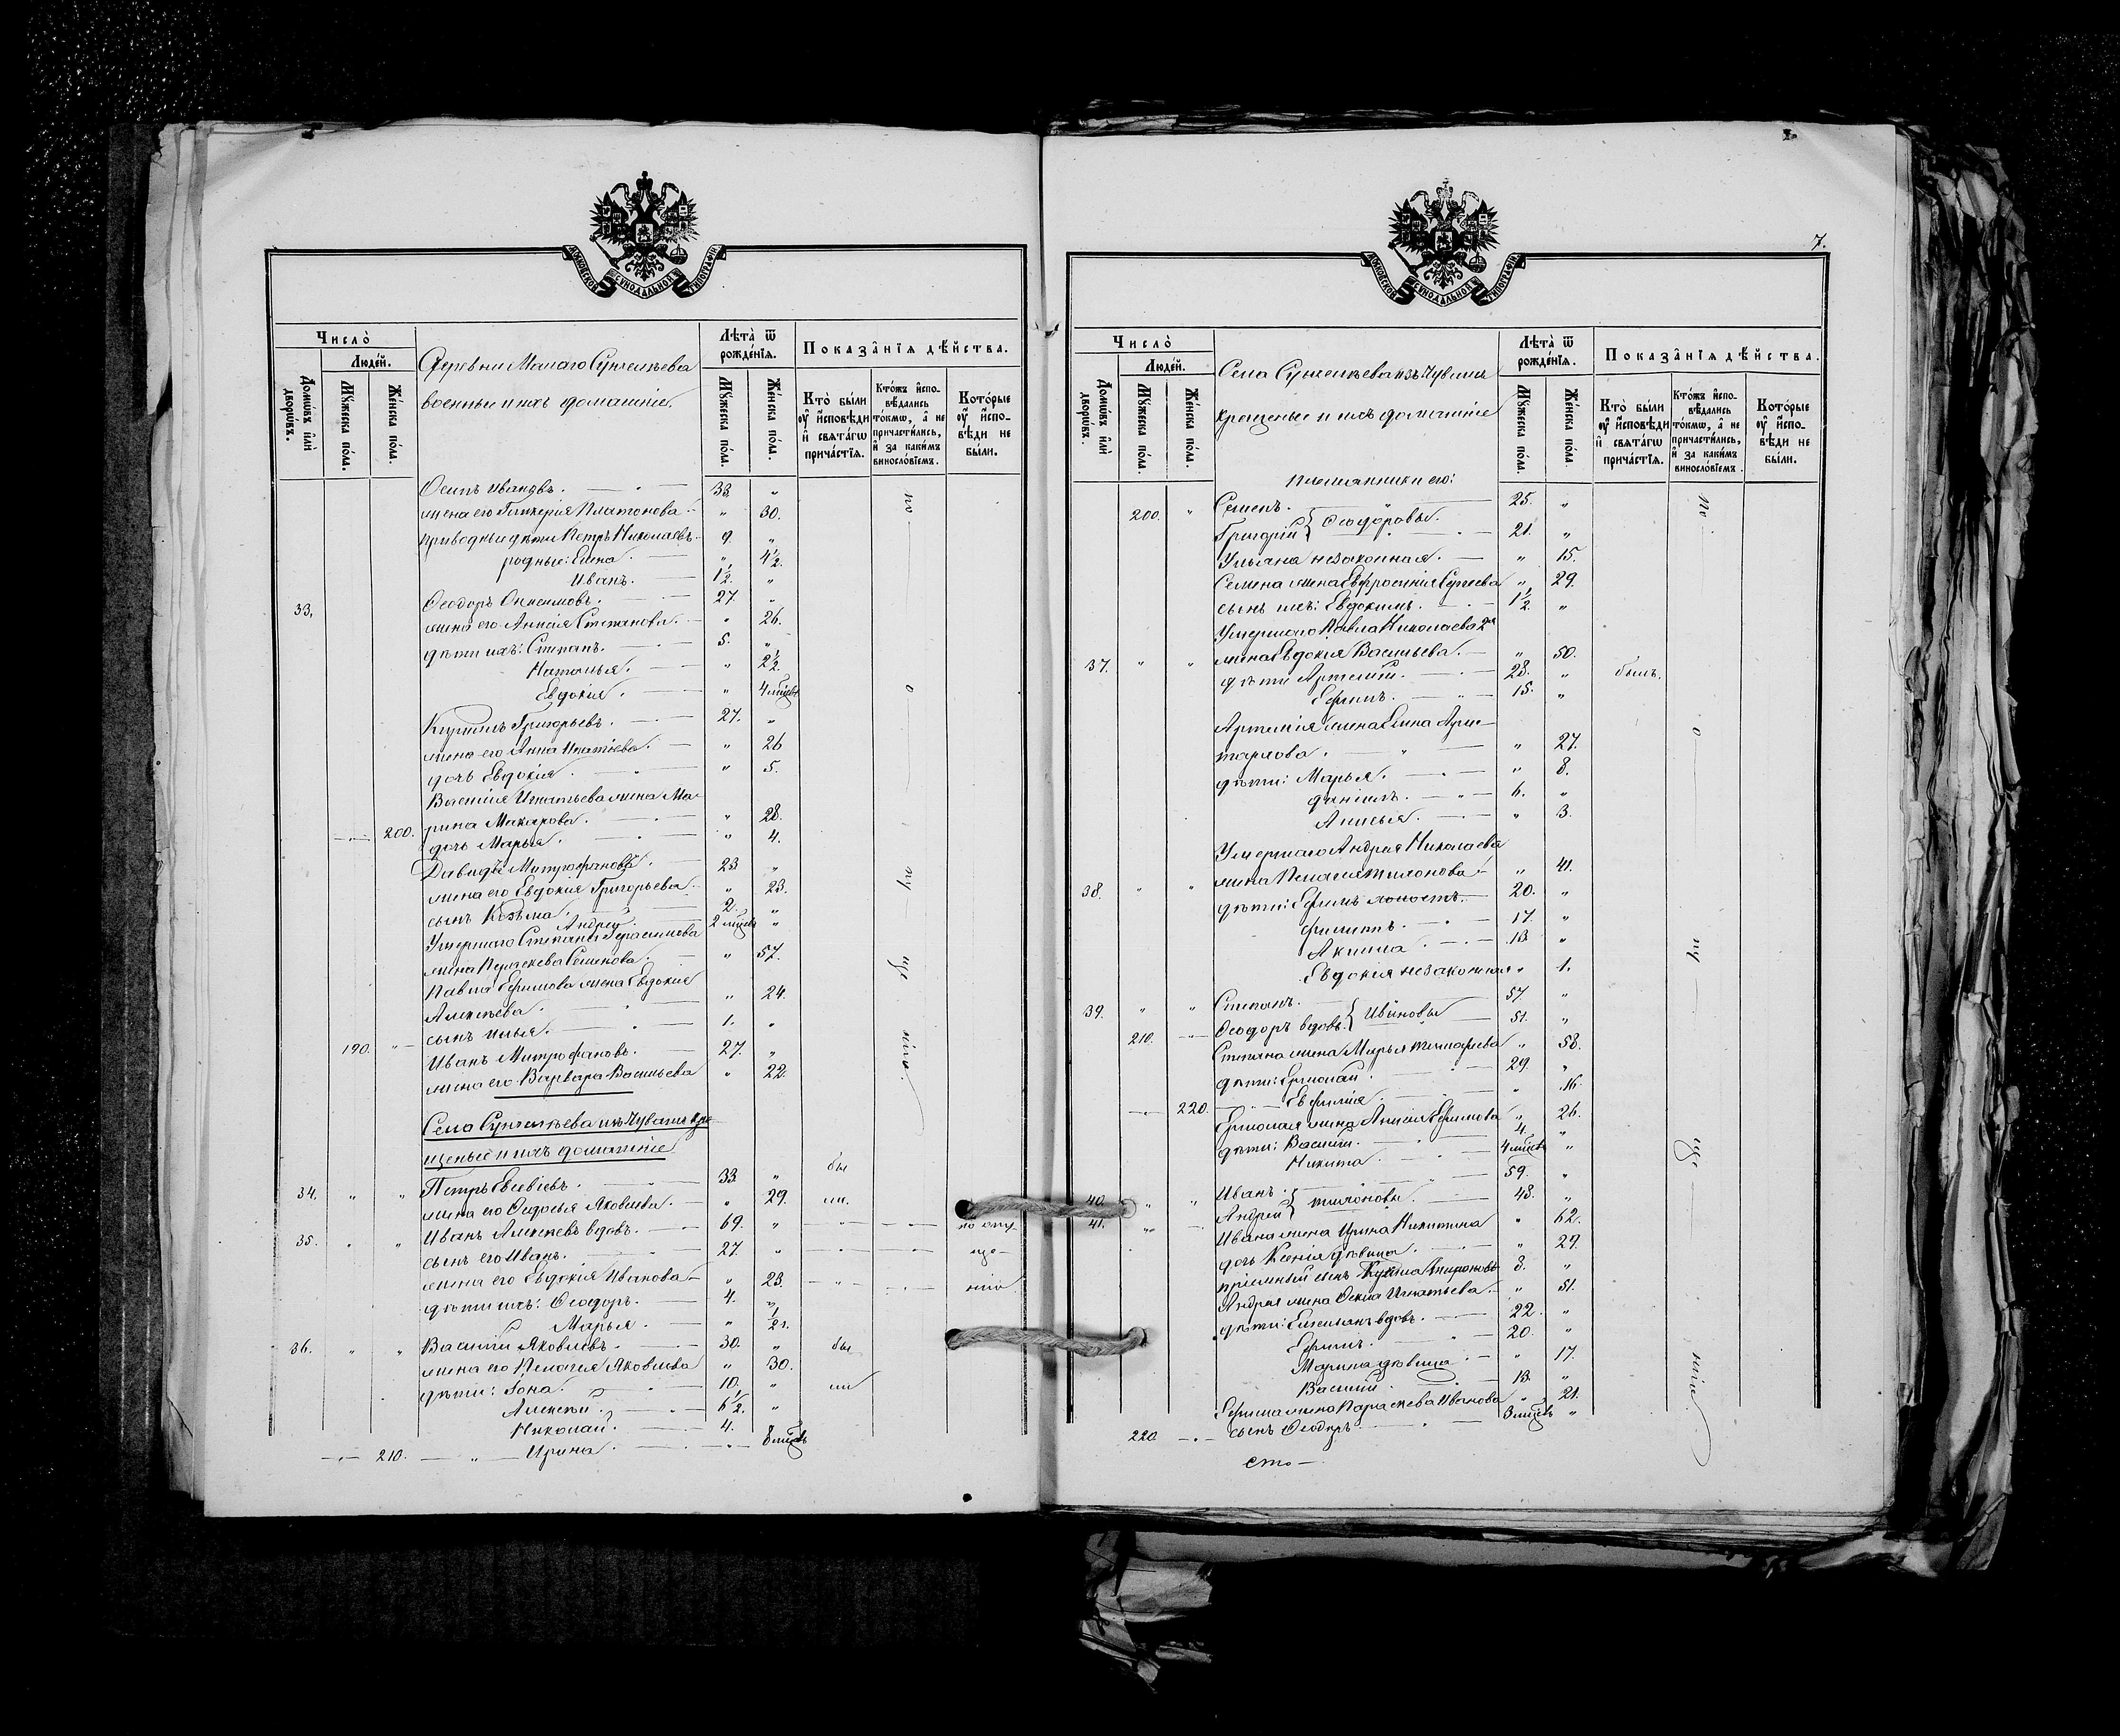 МОСКОВСКОЙ СѴНОДАЛЬНОЙ ТИПОГРАФІИ
Число̀
Люде́й.
Домѡ́въ и҆лѝ дворѡ́въ.
Мꙋ́жеска по́ла.
Же́нска по́ла.
Деревни Малаго Сунчелѣева
военные и ихъ домашніе.
Лѣта̀ ѿ рожде́нїя.
Мꙋ́жеска по́ла.
Же́нска по́ла.
Показа̂нїѧ дѣ́йства.
Кто̀ были ᲂу҆ и҆сповѣди и҆ свѧта́гѡ причастїѧ.
Кто́жъ и҆спо-вѣдались то́кмѡ, а҆ не причасти́лись, и҆ за каки́мъ винослѡ́вїемъ.
Кото́рые ᲂу҆ и҆спо-вѣди не бы́ли.
Осипъ Ивановъ. 33 "
жена его Гликерія Платонова " 30.
приводные дѣти Петръ Николаевъ 9. "
родные: Елена " 4½
Иванъ. 1½. "
33. Ѳеодоръ Онисимовъ. 27. "
жена его Анисія Степанова. " 26.
дѣти ихъ: Степанъ. 5. "
Наталья. " 2½.
Евдокія. " 4 мѣсяц
Кириллъ Григорьевъ. 27. "
жена его Анна Игнатіева. " 26
дочь Евдокія. " 5.
Василія Игнатьева жена Ма-
200. рина Макарова. " 28.
дочь Марья. " 4.
Давидъ Митрофановъ. 23 "
жена его Евдокія Григорьева. " 23.
сынъ Козьма. 2. "
Андрей 2 мѣсяц "
Умершаго Степана Герасимова
жена Параскева Семенова. " 57.
Павла Ефимова жена Евдокія
Алексѣева. " 24.
сынъ Илья. 1. "
190. Иванъ Митрофановъ. 27. "
жена его Варвара Васильева " 22.
Села Сунчелѣева изъ Чувашъ кре-
щеные и ихъ домашніе
34. " " Петръ Евсевіевъ. 33. " бы
жена его Ѳедосья Яковлева. " 29. ли.
35. " " Иванъ Алексѣевъ вдовъ. 69. " по опу
сынъ его Иванъ. 27. " ще-
жена его Евдокія Иванова " 23. нію.
дѣти ихъ: Ѳеодоръ. 4. "
Марья.
36. " " Василій Яковлевъ. 30. " бы
жена его Пелагея Яковлева " 30.
дѣти: Іона. 10. " ли
Алексѣй. 6½. "
Николай. 4. "
210. Ирина 8 мѣсяц
по
о
пу
ще
нію.
7.
МОСКОВСКОЙ СѴНОДАЛЬНОЙ ТИПОГРАФІИ
Число̀
Люде́й.
Домѡ́въ и҆лѝ дворѡ́въ.
Мꙋ́жеска по́ла.
Же́нска по́ла.
Села Сунчелѣева изъ Чувашъ
крещеные и ихъ домашніе
Лѣта̀ ѿ рожде́нїя.
Мꙋ́жеска по́ла.
Же́нска по́ла.
Показа̂нїѧ дѣ́йства.
Кто̀ были ᲂу҆ и҆сповѣди и҆ свѧта́гѡ причастїѧ.
Кто́жъ и҆спо-вѣдались то́кмѡ, а҆ не причасти́лись, и҆ за каки́мъ винослѡ́вїемъ.
Кото́рые ᲂу҆ и҆спо-вѣди не бы́ли.
племянники его:
200. " Семенъ. 25. "
Григорій } Ѳеодоровы. 21. "
Ульяна незаконная. " 15.
Семена жена Евфросинія Сергѣева " 29.
сынъ ихъ: Евдокимъ. 1½. "
Умершаго Павла Николаева 2я
37. " " жена Евдокія Васильева. " 50.
дѣти Артемій. 28. " былъ.
Ефимъ. 15. "
Артемія жена Елена Арис-
тархова. " 27.
дѣти: Марья. " 8.
Даніилъ. 6. "
Анисья. " 3.
Умершаго Андрея Николаева
38. " " жена Пелагея Тихонова. " 41.
дѣти: Ефимъ холостъ. 20. "
Филиппъ. 17. "
Акилла 13 "
Евдокія незаконная " 1.
39. " " Степанъ. 57. "
210. Ѳеодоръ вдовъ. } Ивановы 51. "
Степана жена Марья Тимофеева " 58.
дѣти: Ермолай. 29. "
220. Евфимія. " 16.
Ермолая жена Анисія Ефимова " 26.
дѣти: Василій. 4. "
Никита. 4 мѣсяц "
40. " " Иванъ. 59. "
41. Андрей } Тихоновы. 48. "
Ивана жена Ирина Никитина " 62.
дочь Ксенія дѣвица. " 29.
пріемный сынъ 3. "
Андрея жена Ѳекла Игнатьева. " 51.
дѣти: Емельянъ вдовъ. 22. "
Ефимъ. 20. "
Марина дѣвица. " 17.
Василій. 13. "
Ефима жена Параскева Иванова " 21.
220. сынъ Ѳеодоръ. 3 мѣсяц "
по
о
пу
ще
нію.